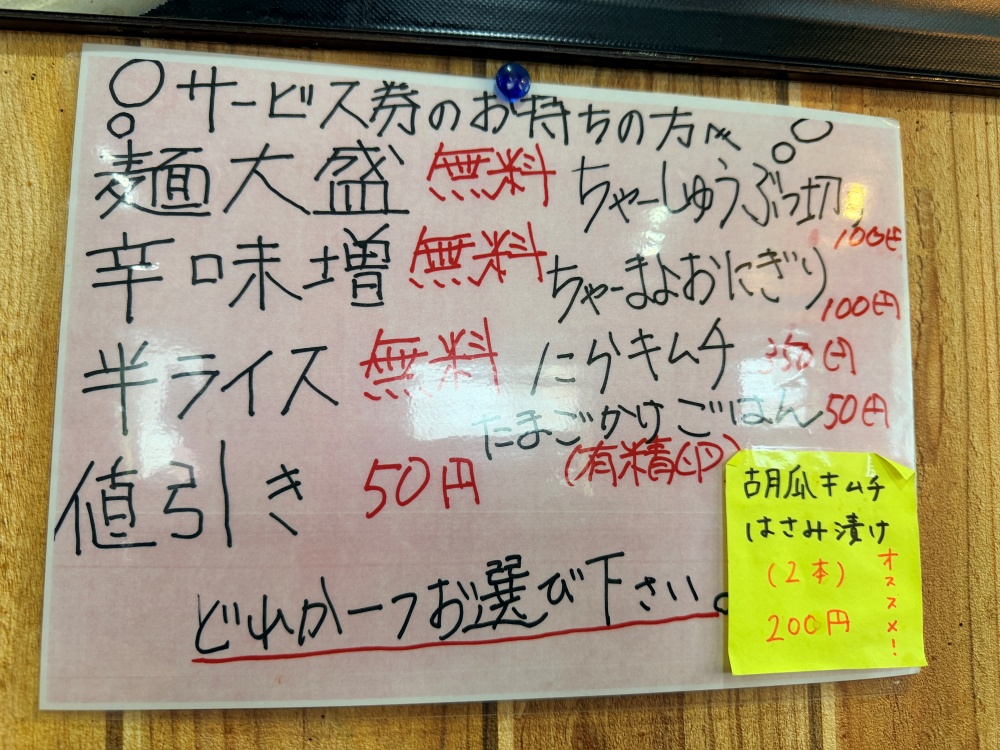 サービス券のお持ちの方々
麺大盛 無料
辛味増 無料
半ライス 無料
値引き 50円
ちゃーしゅうぶつ切 100円
ちゃーまよおにぎり 100円
にらキムチ 350円
たまごかけごはん 50円
(有精卵)
どれか一つお選び下さい。
胡瓜キムチ
はさみ漬け
(2本)
200円
オススメ!